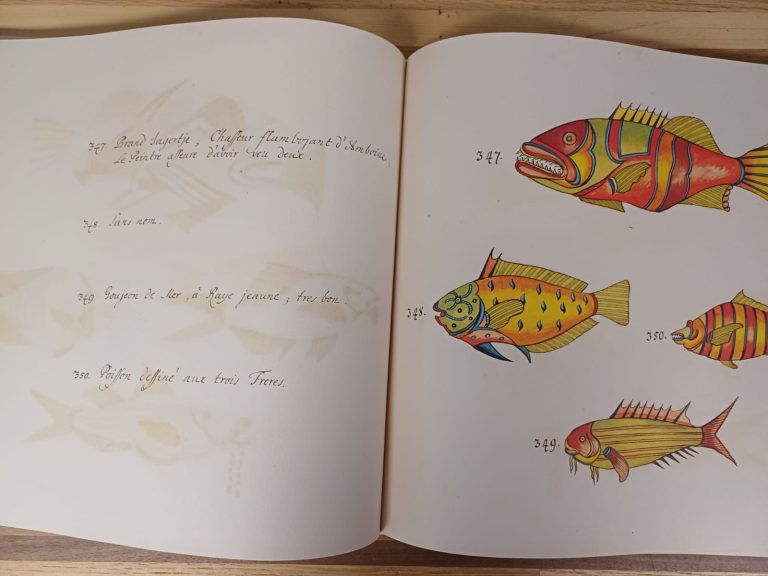 347. Brand Jagertje; Chasseur flambojant d'Amboine,
Le Peintre asseure d'avoir veu deux.
348. Sans nom.
349. Goujeon de Mer, à Raye jeaune; tres bon.
350. Poisson dessiné aux trois Freres.
347.
348.
350.
349.